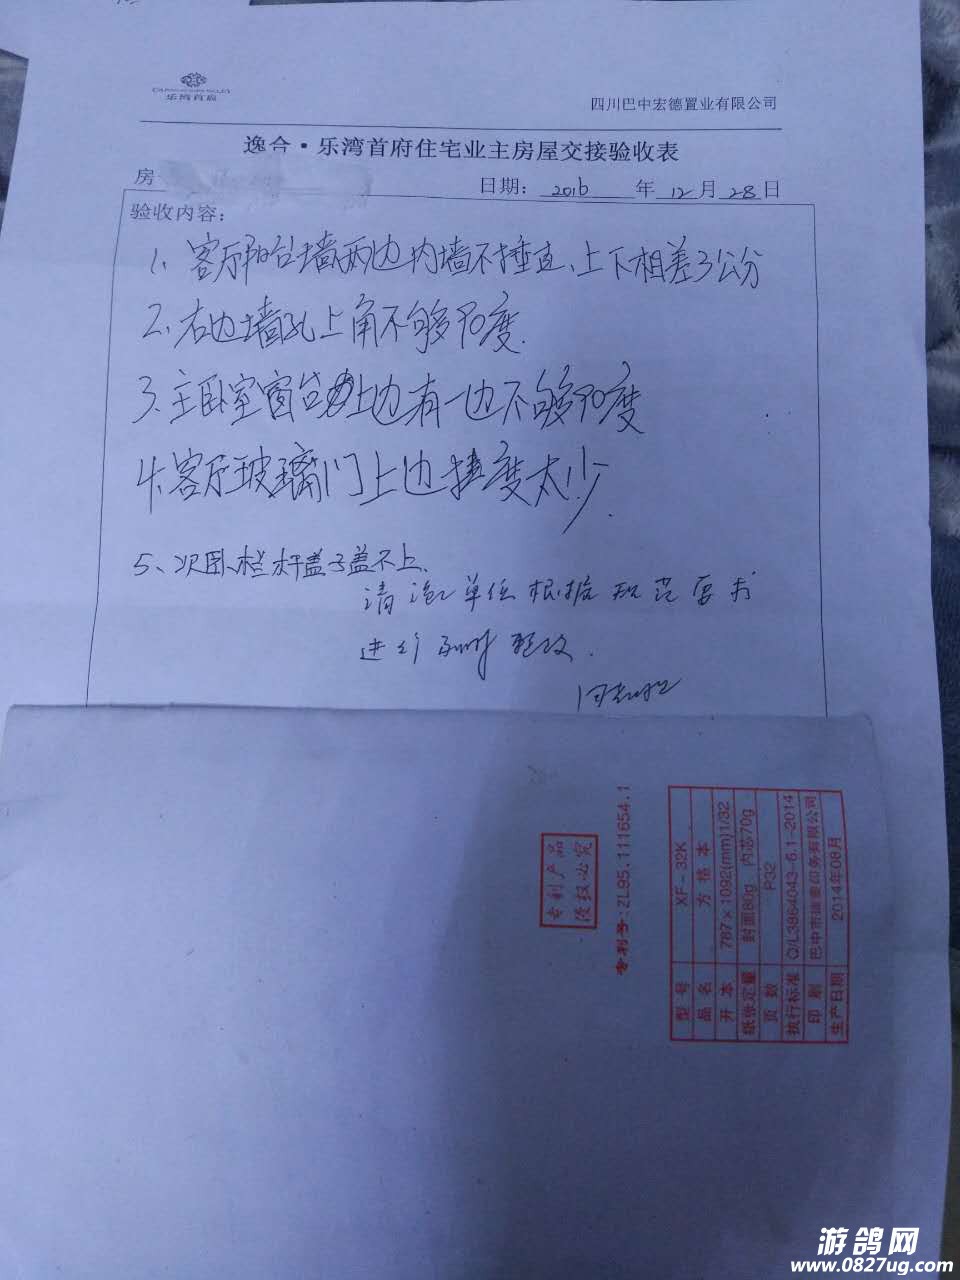 乐湾首府
四川巴中宏德置业有限公司
逸合·乐湾首府住宅业主房屋交接验收表
房
日期：2016年12月28日
验收内容：
1、客厅阳台墙两边内墙不捶直、上下相差3公分
2、右边墙孔上角不够90度.
3、主卧室窗台上边有一边不够90度
4、客厅玻璃门上边捶度太少.
5、次卧、栏杆盖子盖不上、
请施工单位根据规范要求
进行及时整改.
专利产品
侵权必究
专利号:ZL95.111654.1
型号 XF-32K
品名 方格本
开本 787×1092(mm)1/32
纸张定量 封面80g 内芯70g
页数 P32
执行标准 Q/L3864043-6.1-2014
印刷 巴中市 印务有限公司
生产日期 2014年08月
游鸽网
www.0827ug.com